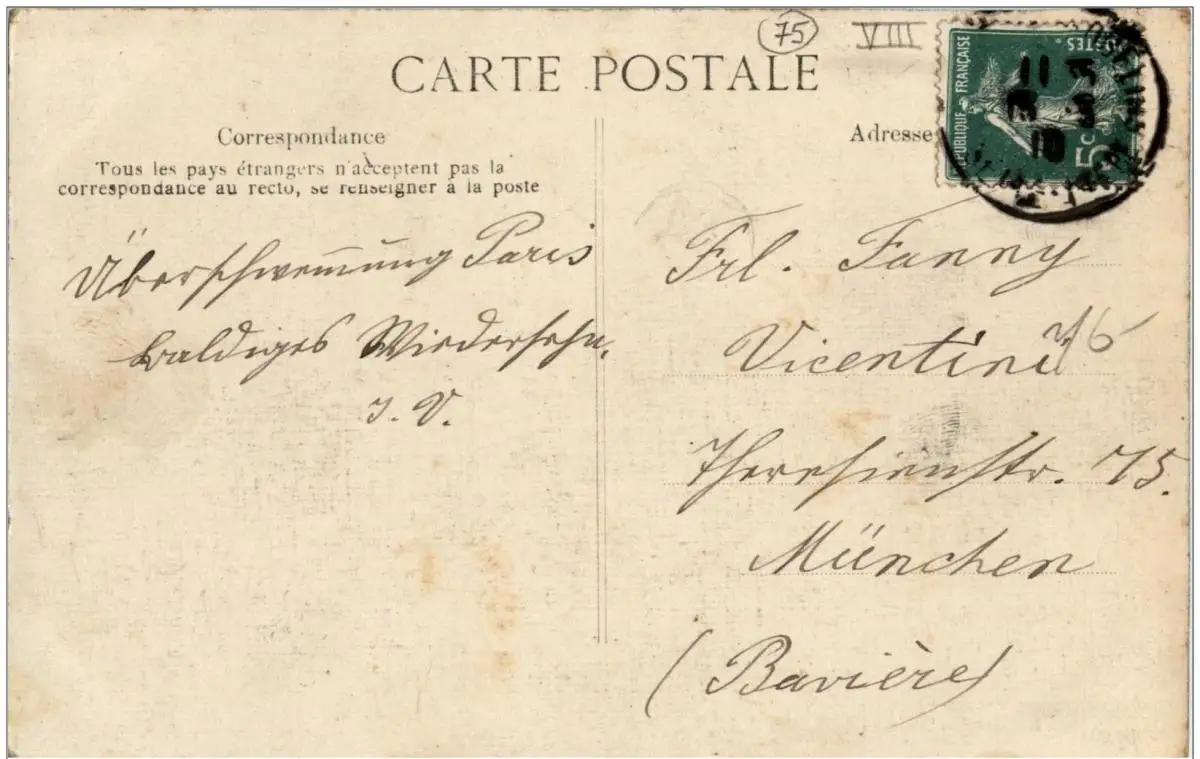 75
VIII
CARTE POSTALE
Correspondance
Tous les pays étrangers n'acceptent pas la
correspondance au recto, se renseigner à la poste
Adresse
RÉPUBLIQUE FRANÇAISE
POSTES
5c
11
3-3
10
Überschwemmung Paris
baldiges Wiedersehn.
J. V.
Frl. Fanny
Vicentini
Theresienstr. 75.
München
(Bavière)